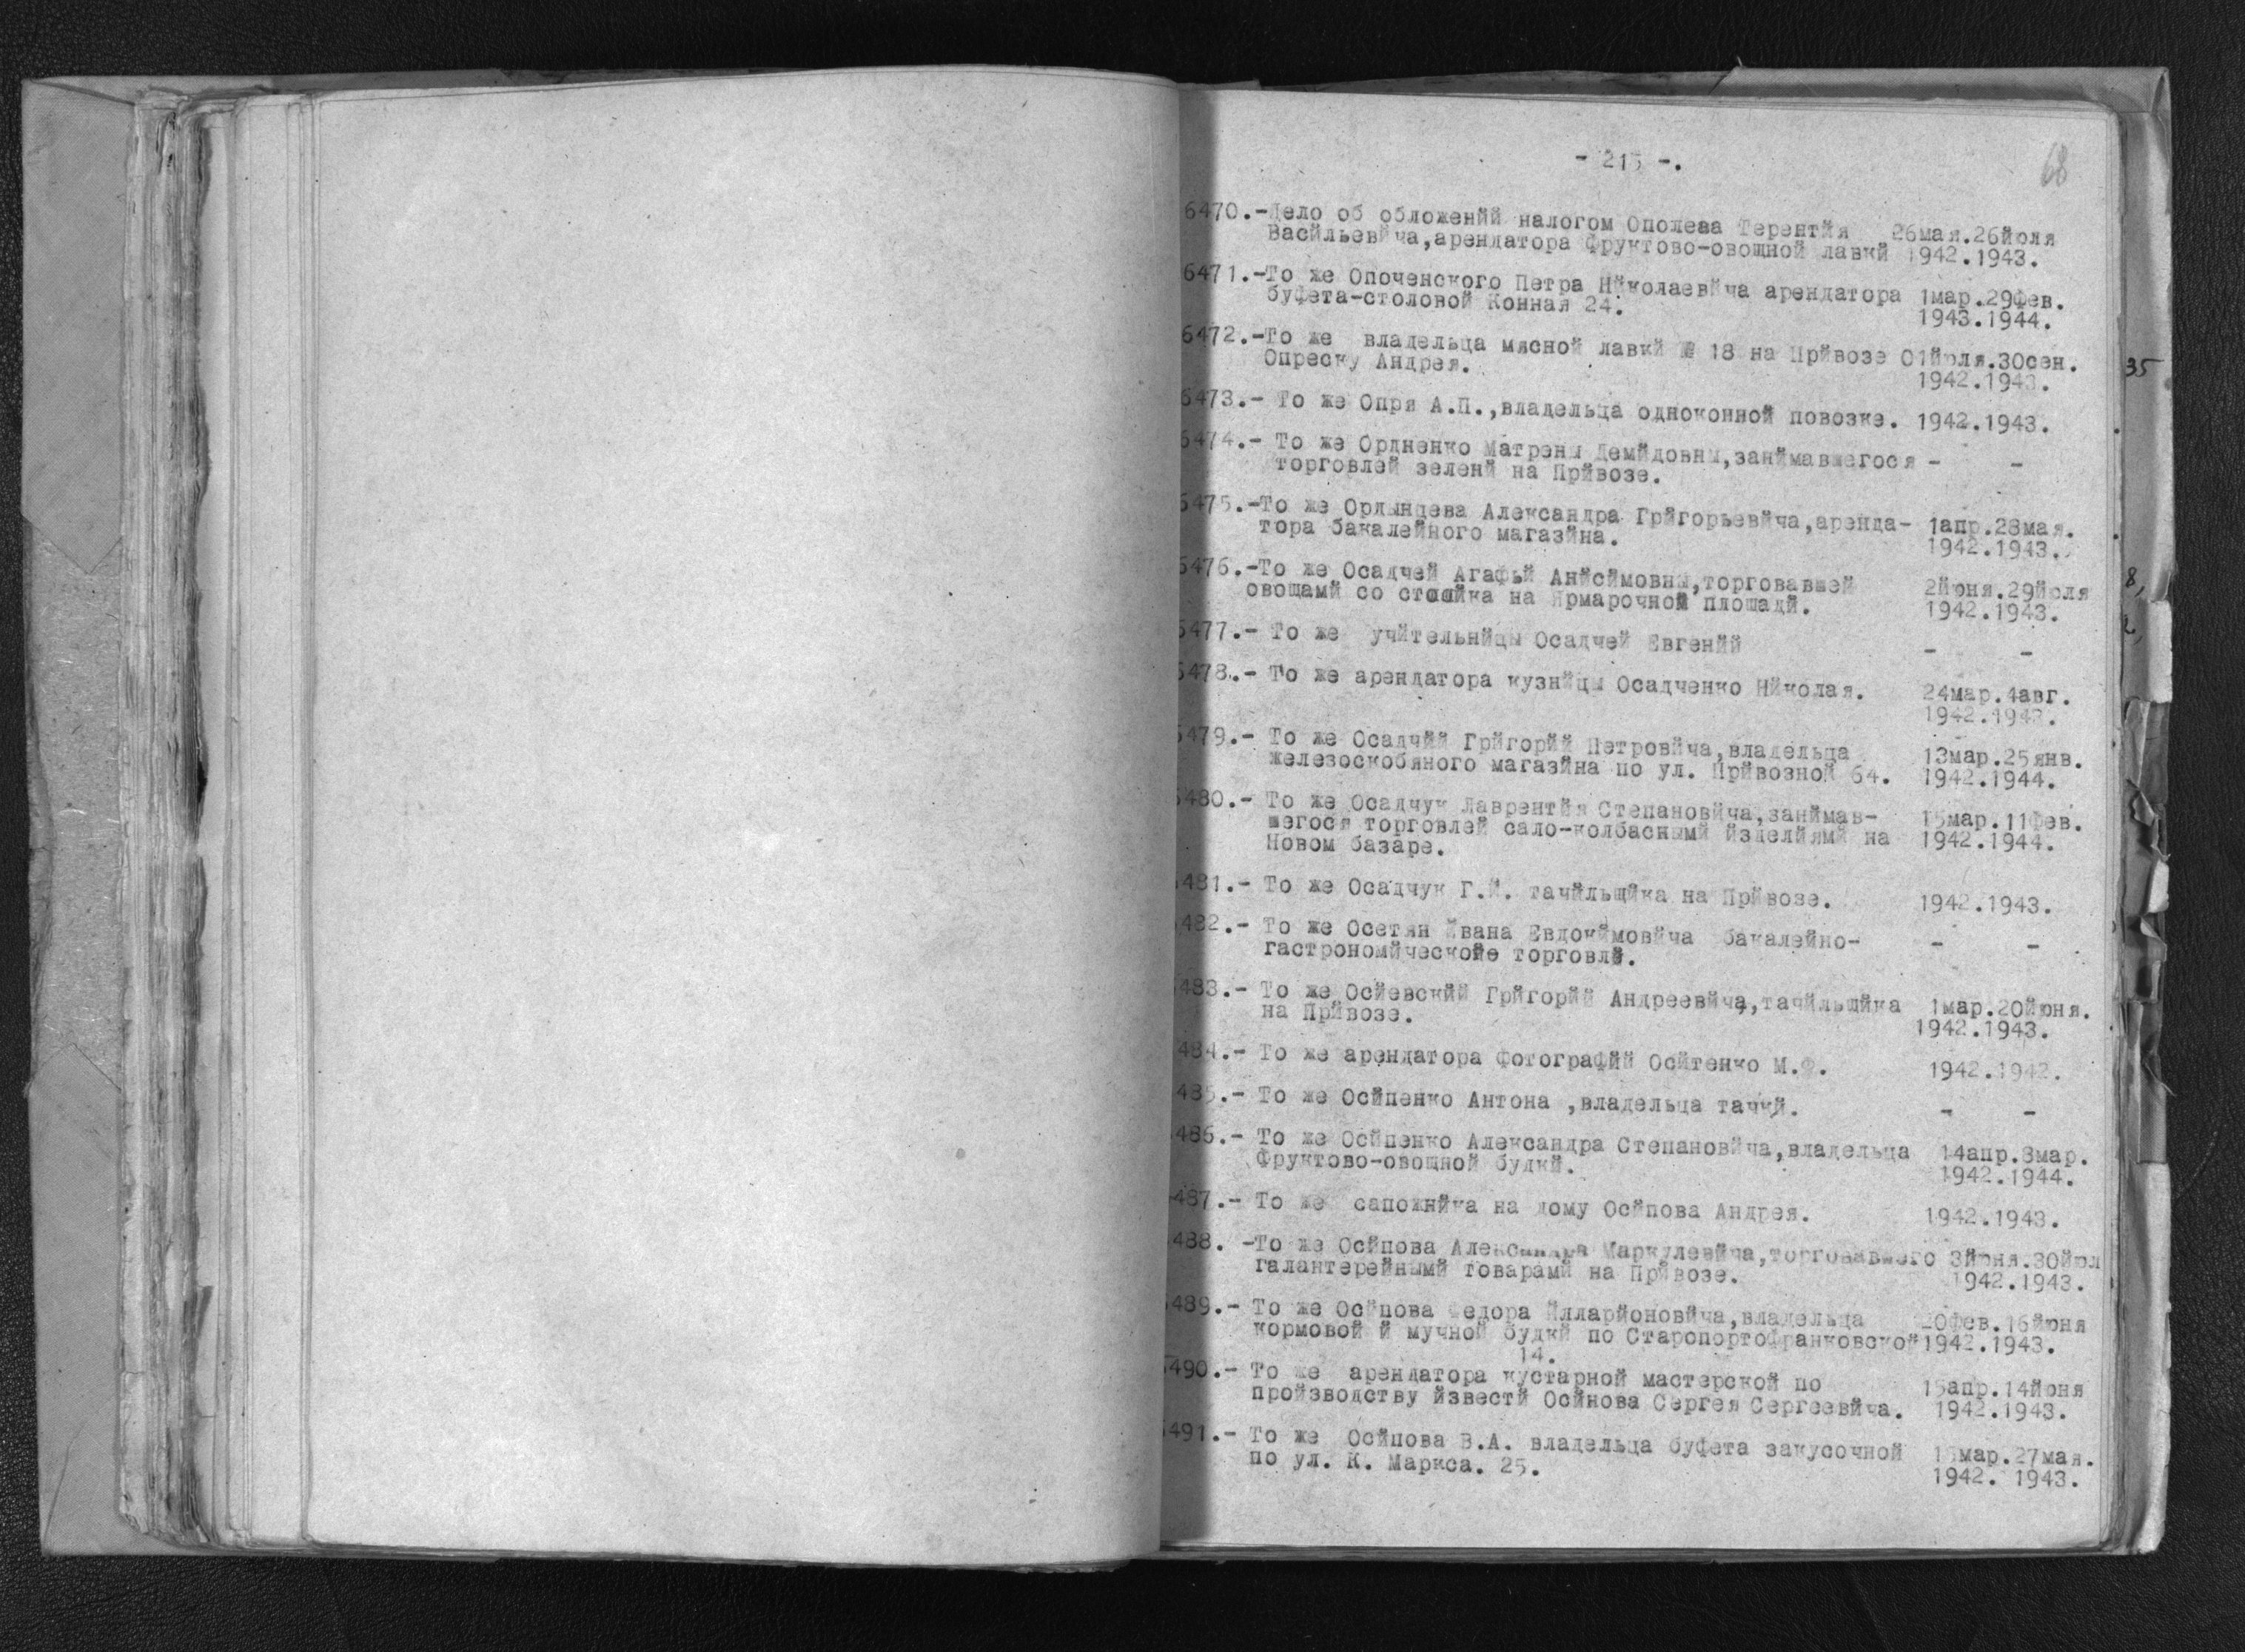 - 215 -.
68
6470.-Дело об обложенйй налогом Ополева Терентйя 26мая.26йюля
Васйльевйча,арендатора Фруктово-овощной лавкй 1942.1943.
6471.-То же Опоченского Петра Нйколаевйча арендатора 1мар.29фев.
буфета-столовой Конная 24.
1943.1944.
6472.-То же владельца мясной лавкй № 18 на Прйвозе 01йюля.30сен.
Опреску Андрея.
1942.1943.
35
6473.- То же Опря А.П.,владельца одноконной повозке. 1942.1943.
6474.- То же Ордненко Матрены Демйдовны,занймавшегося - -
торговлей зеленй на Прйвозе.
6475.-То же Ордынцева Александра Грйгорьевйча,аренда- 1апр.28мая.
тора бакалейного магазйна.
1942.1943.
6476.-То же Осадчей Агафьй Анйсймовны,торговавшей 2йюня.29йюля
овощамй со столйка на Ярмарочной площадй. 1942.1943.
8,
2,
6477.- То же учйтельнйцы Осадчей Евгенйй - -
6478.- То же арендатора кузнйцы Осадченко Нйколая. 24мар.4авг.
1942.1943.
6479.- То же Осадчйй Грйгорйй Петровйча,владельца 13мар.25янв.
железоскобяного магазйна по ул. Прйвозной 64. 1942.1944.
6480.- То же Осадчук Лаврентйя Степановйча,занймав- 15мар.11фев.
шегося торговлей сало-колбаснымй йзделйямй на 1942.1944.
Новом базаре.
481.- То же Осадчук Г.Й. тачйльщйка на Прйвозе. 1942.1943.
482.- То же Осетян Йвана Евдокймовйча бакалейно- - -
гастрономйческойе торговлй.
483.- То же Осйевскйй Грйгорйй Андреевйча,тачйльщйка 1мар.20йюня.
на Прйвозе.
1942.1943.
484.- То же арендатора фотографйй Осйтенко М.Ф. 1942.1942.
485.- То же Осйпенко Антона ,владельца тачкй. - -
486.- То же Осйпенко Александра Степановйча,владельца 14апр.8мар.
Фруктово-овощной будкй.
1942.1944.
487.- То же сапожнйка на дому Осйпова Андрея. 1942.1943.
488. -То же Осйпова Александра Маркулевйча,торговавшего 3йюня.30йюл
галантерейнымй товарамй на Прйвозе.
1942.1943.
489.- То же Осйпова Федора Йлларйоновйча,владельца 20фев.16йюня
кормовой й мучной будкй по Старопортофранковской 1942.1943.
14.
6490.- То же арендатора кустарной мастерской по 15апр.14йюня
пройзводству йзвестй Осйнова Сергея Сергеевйча. 1942.1943.
6491.- То же Осйпова В.А. владельца буфета закусочной 15мар.27мая.
по ул. К. Маркса. 25.
1942. 1943.